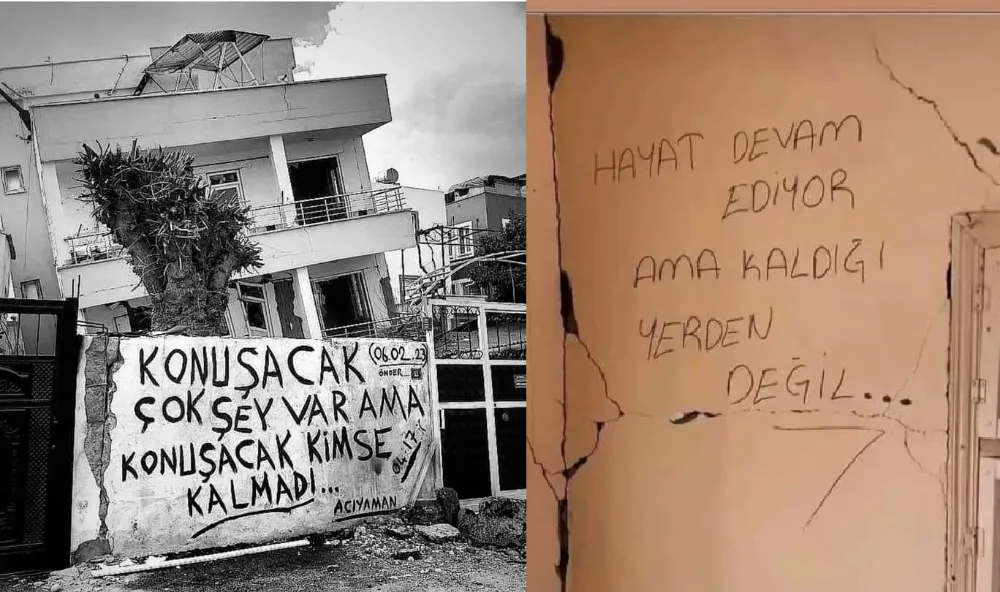 KONUŞACAK (06.02.23
ÖNDER
ÇOK ŞEY VAR AMA
KONUŞACAK KİMSE
04.17
KALMADI...
ACIYAMAN
HAYAT DEVAM
EDİYOR
AMA KALDIĞI
YERDEN
DEĞİL...